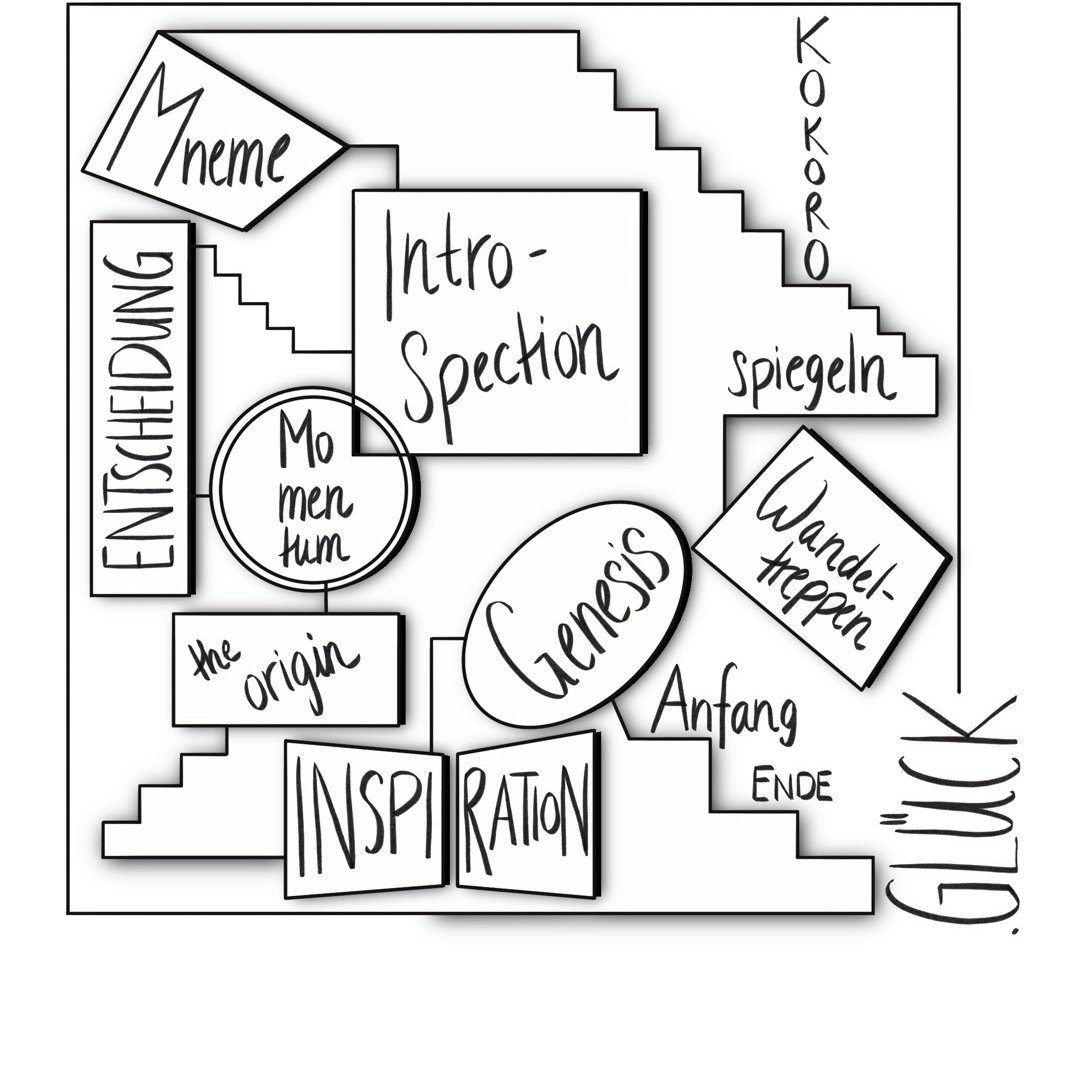 Mneme
KOKORO
Intro-
Spection
ENTSCHEIDUNG
spiegeln
Mo
men
tum
Wandel-
treppen
Genesis
the
origin
Anfang
ENDE
INSPI
RATION
.GLÜCK